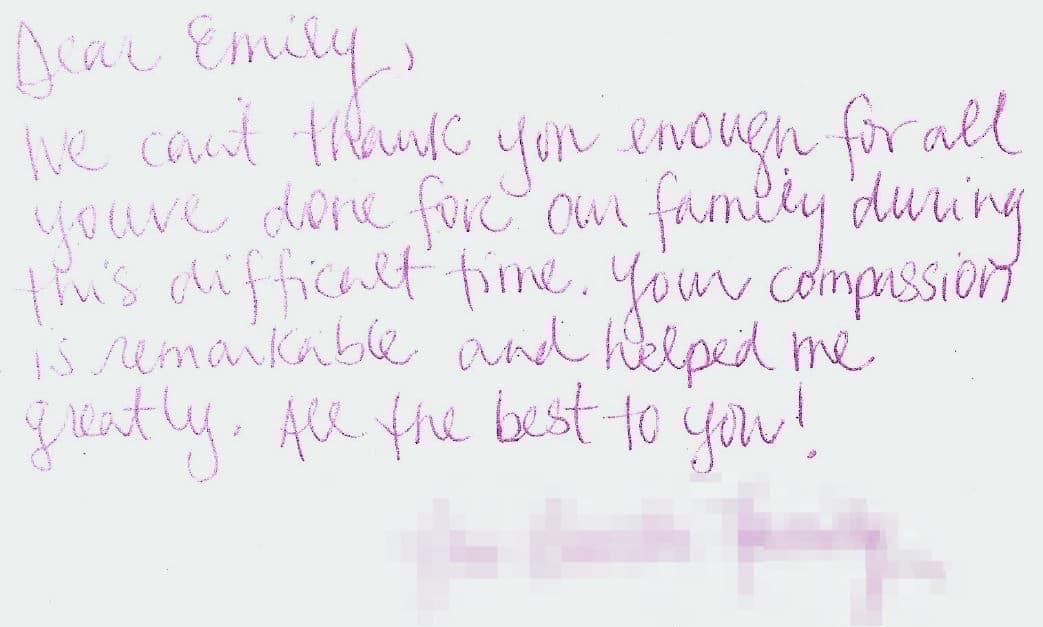 Dear Emily,
We can't thank you enough for all
youve done for our family during
this difficult time. Your compassion
is remarkable and helped me
greatly. All the best to you!